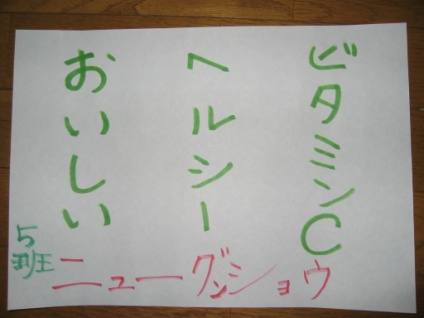 ビタミンC
ヘルシー
おいしい
5班
ニューグンショウ